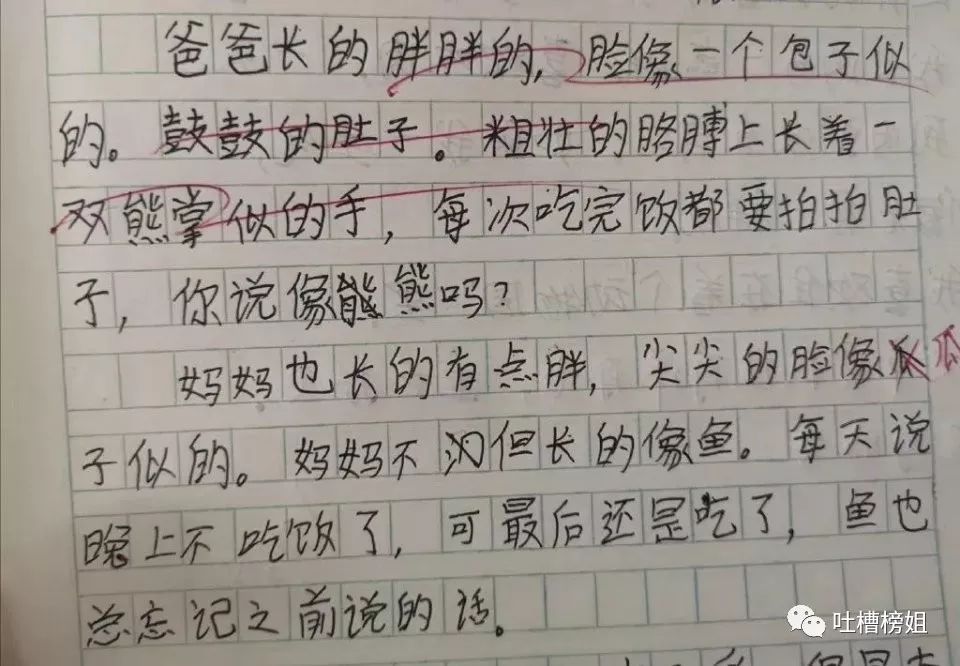 爸爸长的胖胖的，脸像一个包子似
的。鼓鼓的肚子。粗壮的胳膊上长着一
双熊掌似的手，每次吃完饭都要拍拍肚
子，你说像熊熊吗？
妈妈也长的有点胖，尖尖的脸像瓜
子似的。妈妈不但长的像鱼。每天说
晚上不吃饭了，可最后还是吃了，鱼也
总忘记之前说的话。
吐槽榜姐